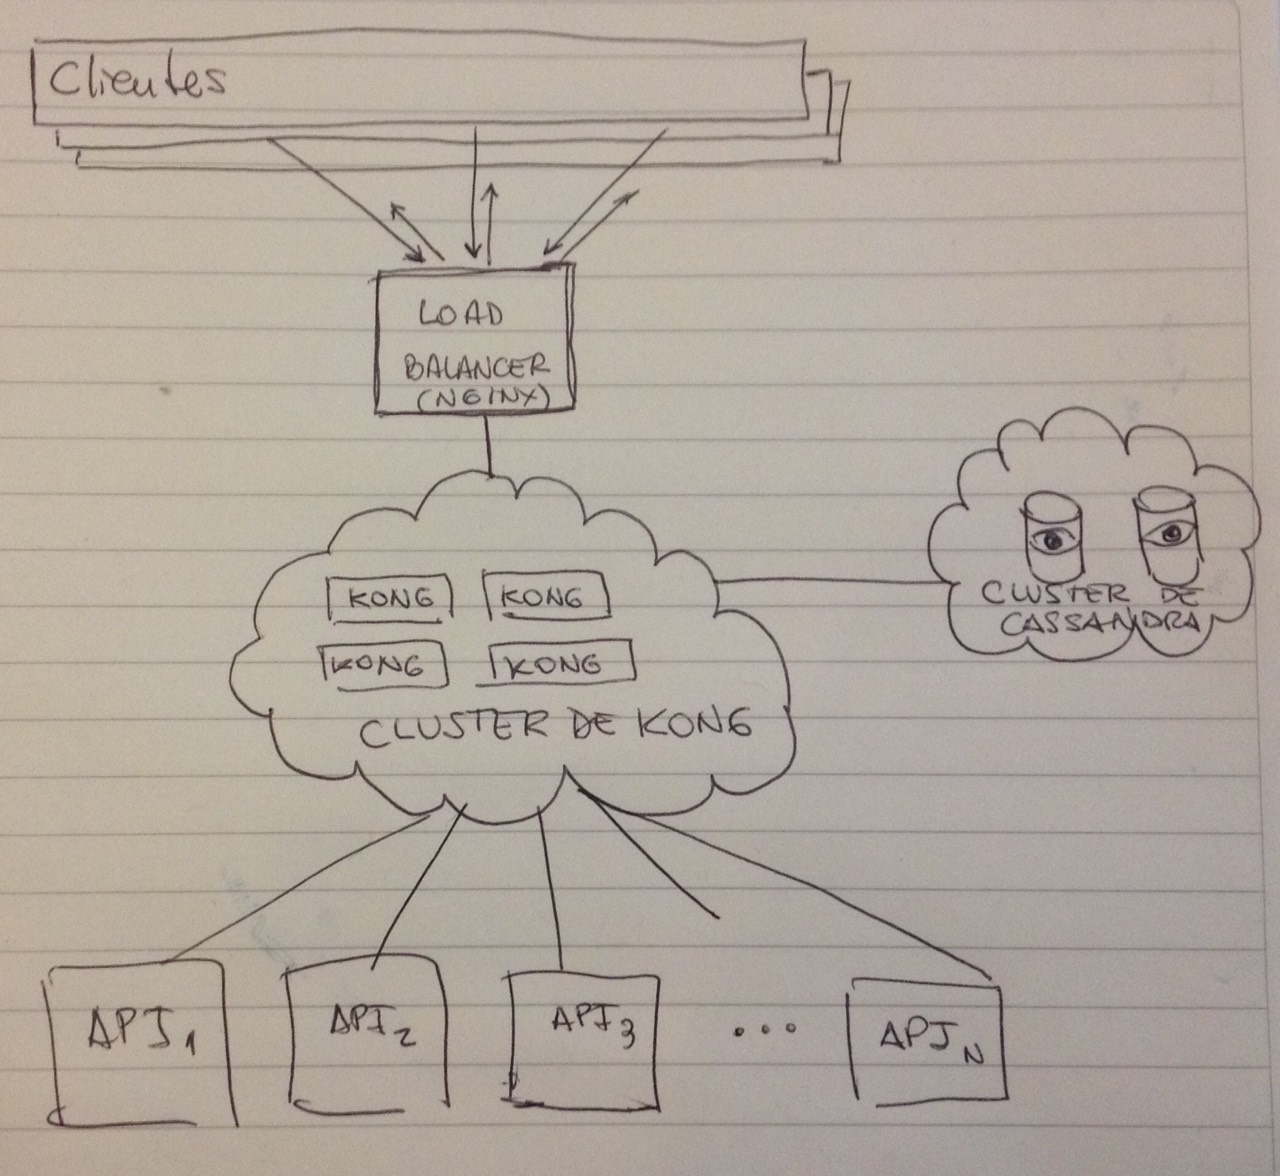 Clientes
LOAD
BALANCER
(NGINX)
KONG KONG
KONG KONG
CLUSTER DE KONG
CLUSTER DE
CASSANDRA
API1
API2
API3
...
APIN